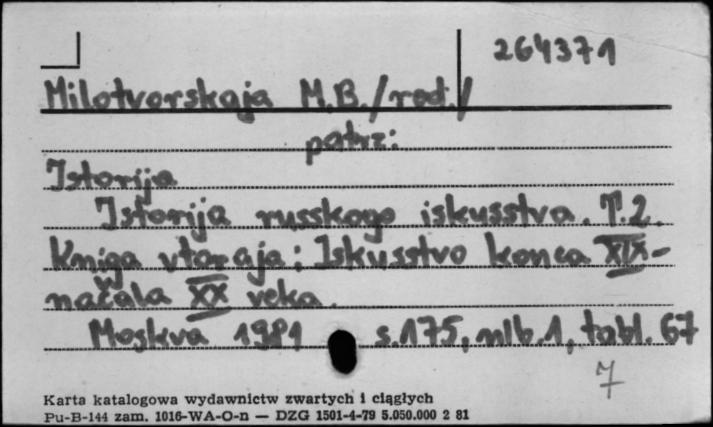 264371
Milotvorskaja M.B./red./
patrz:
Istorija
Istorija russkogo iskusstva. T.2.
Kniga vtoraja: Iskusstvo konca XIX-
načala XX veka.
Moskva 1981 s.175, nlb.1, tabl. 67
7
Karta katalogowa wydawnictw zwartych i ciągłych
Pu-B-144 zam. 1016-WA-O-n — DZG 1501-4-79 5.050.000 2 81